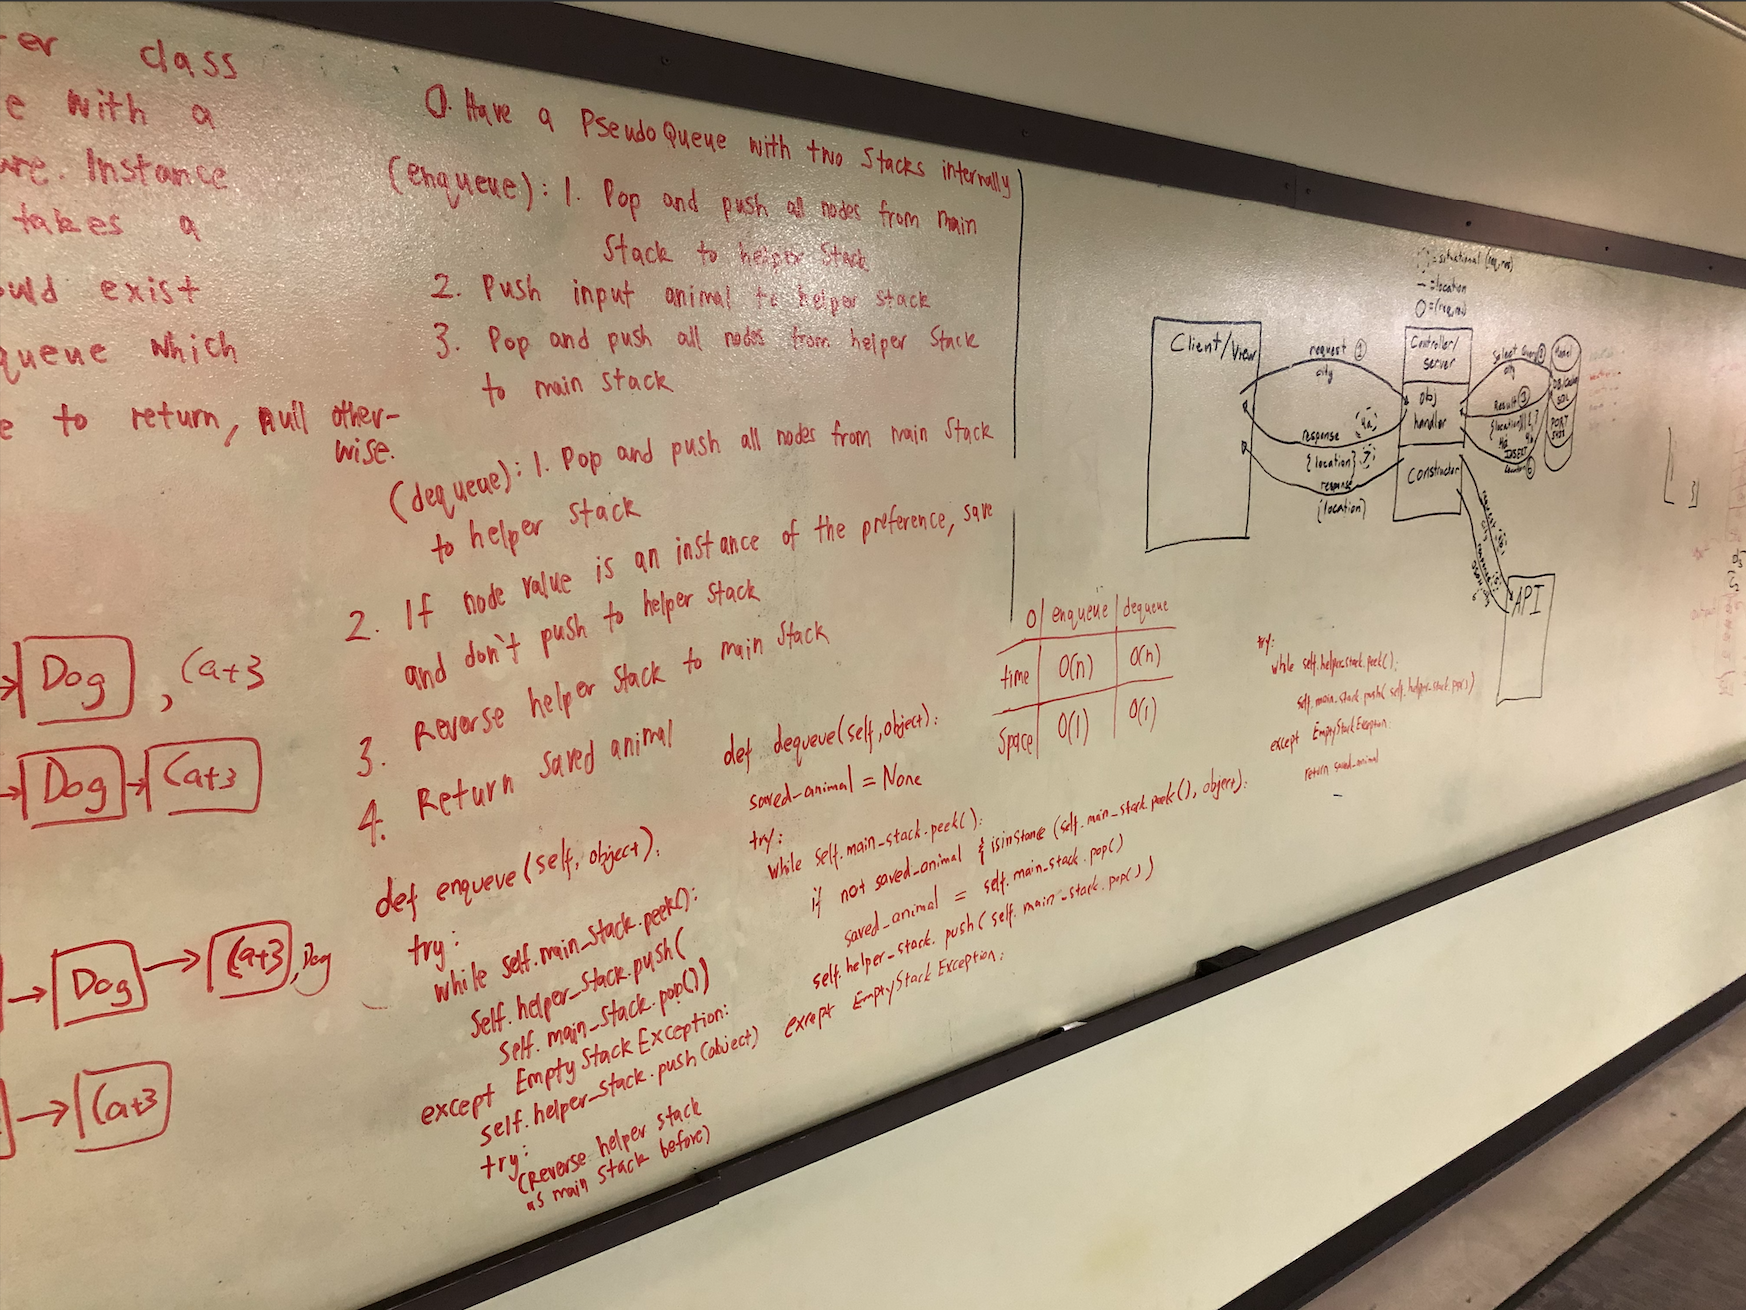 class
with a
Instance
takes a
exist
queue which
to return, null other-
wise.
Dog , Cat
Dog Cat
Dog Cat , Dog
Cat
0. Have a PseudoQueue with two Stacks internally
(enqueue): 1. Pop and push all nodes from main
Stack to helper Stack
2. Push input animal to helper stack
3. Pop and push all nodes from helper Stack
to main stack
(dequeue): 1. Pop and push all nodes from main Stack
to helper stack
2. If node value is an instance of the preference, save
and don't push to helper stack
3. Reverse helper stack to main stack
4. Return saved animal
def enqueue(self, object):
try:
while self.main_stack.peek():
self.helper_stack.push(
self.main_stack.pop())
except EmptyStackException:
self.helper_stack.push(object)
try:
(Reverse helper stack
as main stack before)
def dequeue(self, object):
saved_animal = None
try:
while self.main_stack.peek():
if not saved_animal & isinstance(self.main_stack.peek(), object):
saved_animal = self.main_stack.pop()
self.helper_stack.push(self.main_stack.pop())
except EmptyStackException:
O enqueue dequeue
time O(n) O(n)
Space O(1) O(1)
try:
while self.helper_stack.peek():
self.main_stack.push(self.helper_stack.pop())
except EmptyStackException:
return saved_animal
= situational (req, res)
— = location
O = (req, res)
Client/View
request 1
city
response 4a
{location}
response
{location}
Controller/
server
obj
handler
Constructor
Select Query 2
city
Result 3
{location}
INSERT
Model
SQL
PORT
API